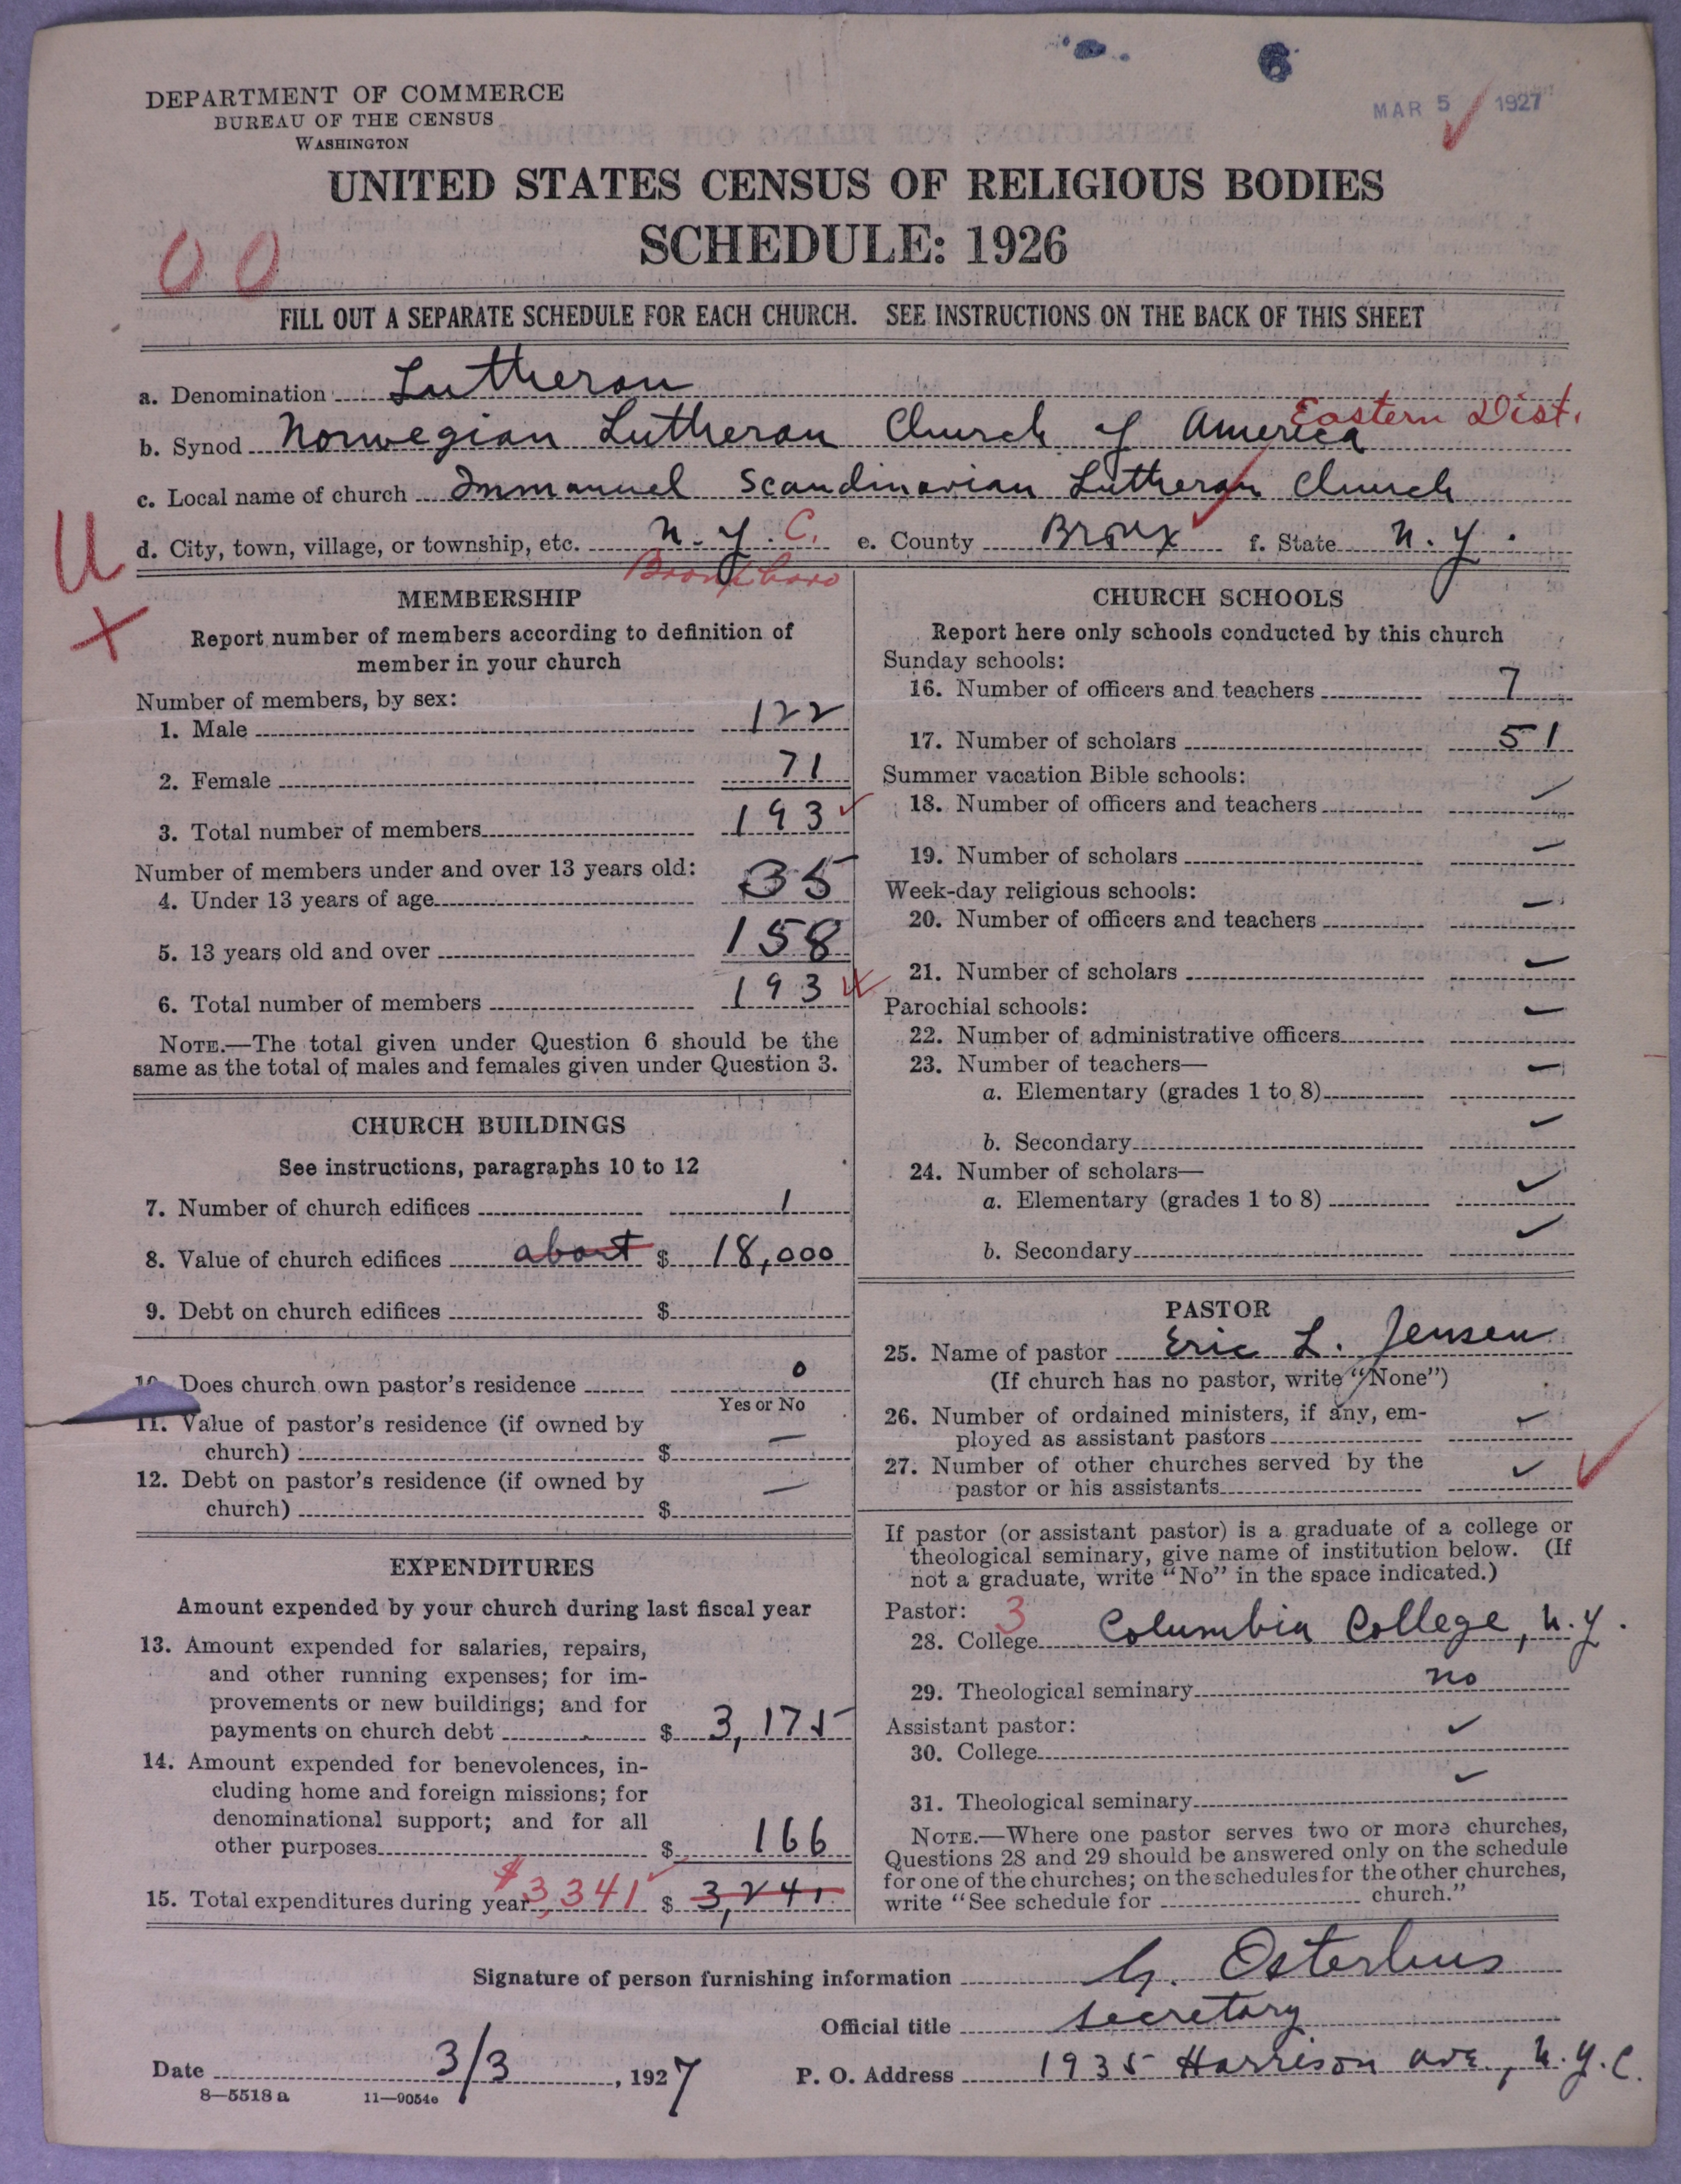 6
MAR 5 1927
DEPARTMENT OF COMMERCE
BUREAU OF THE CENSUS
WASHINGTON
UNITED STATES CENSUS OF RELIGIOUS BODIES
SCHEDULE: 1926
00
FILL OUT A SEPARATE SCHEDULE FOR EACH CHURCH. SEE INSTRUCTIONS ON THE BACK OF THIS SHEET
a. Denomination Lutheran
Eastern Dist.
b. Synod Norwegian Lutheran Church of America
c. Local name of church Immanuel Scandinavian Lutheran Church
U
d. City, town, village, or township, etc. N.Y.C. e. County Bronx f. State N.Y.
Bronx boro
X
MEMBERSHIP
Report number of members according to definition of
member in your church
Number of members, by sex:
1. Male 122
2. Female 71
3. Total number of members 193
Number of members under and over 13 years old:
4. Under 13 years of age 35
5. 13 years old and over 158
6. Total number of members 193
NOTE.—The total given under Question 6 should be the
same as the total of males and females given under Question 3.
CHURCH BUILDINGS
See instructions, paragraphs 10 to 12
7. Number of church edifices 1
8. Value of church edifices about $ 18,000
9. Debt on church edifices $
10. Does church own pastor's residence 0
Yes or No
11. Value of pastor's residence (if owned by
church) $ —
12. Debt on pastor's residence (if owned by
church) $ —
EXPENDITURES
Amount expended by your church during last fiscal year
13. Amount expended for salaries, repairs,
and other running expenses; for im-
provements or new buildings; and for
payments on church debt $ 3,175
14. Amount expended for benevolences, in-
cluding home and foreign missions; for
denominational support; and for all
other purposes $ 166
15. Total expenditures during year $3,341 $ 3,241
CHURCH SCHOOLS
Report here only schools conducted by this church
Sunday schools:
16. Number of officers and teachers 7
17. Number of scholars 51
Summer vacation Bible schools:
18. Number of officers and teachers
19. Number of scholars
Week-day religious schools:
20. Number of officers and teachers
21. Number of scholars
Parochial schools:
22. Number of administrative officers
23. Number of teachers—
a. Elementary (grades 1 to 8)
b. Secondary
24. Number of scholars—
a. Elementary (grades 1 to 8)
b. Secondary
PASTOR
25. Name of pastor Eric L. Jensen
(If church has no pastor, write "None")
26. Number of ordained ministers, if any, em-
ployed as assistant pastors
27. Number of other churches served by the
pastor or his assistants
If pastor (or assistant pastor) is a graduate of a college or
theological seminary, give name of institution below. (If
not a graduate, write "No" in the space indicated.)
Pastor: 3
28. College Columbia College, N.Y.
29. Theological seminary no
Assistant pastor:
30. College
31. Theological seminary
NOTE.—Where one pastor serves two or more churches,
Questions 28 and 29 should be answered only on the schedule
for one of the churches; on the schedules for the other churches,
write "See schedule for church."
Signature of person furnishing information G. Osterhus
Official title Secretary
Date 3/3, 1927 P. O. Address 1935 Harrison Ave, N.Y.C.
8—5518 a 11—9054e